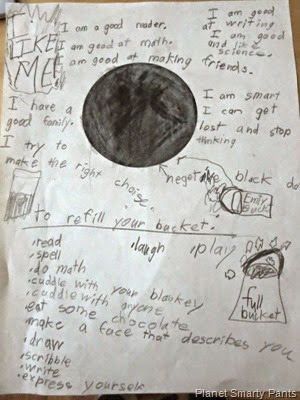 I
LIKE
ME!
I am a good reader.
I am good at math.
I am good at making friends.
I am good
at writing
I am good
and like
science.
I have a
good family.
I try to
make the right
choise.
I am smart
I can get
lost and stop
thinking
negetive black do
Emty
Buck
to refill your bucket.
.read
.spell
.do math
.cuddle with your blankey
.cuddle with anyone
.eat some chocolate
.make a face that describes you
.draw
.scribble
.write
.express yourself
.laugh
.play
full
bucket
Planet Smarty Pants